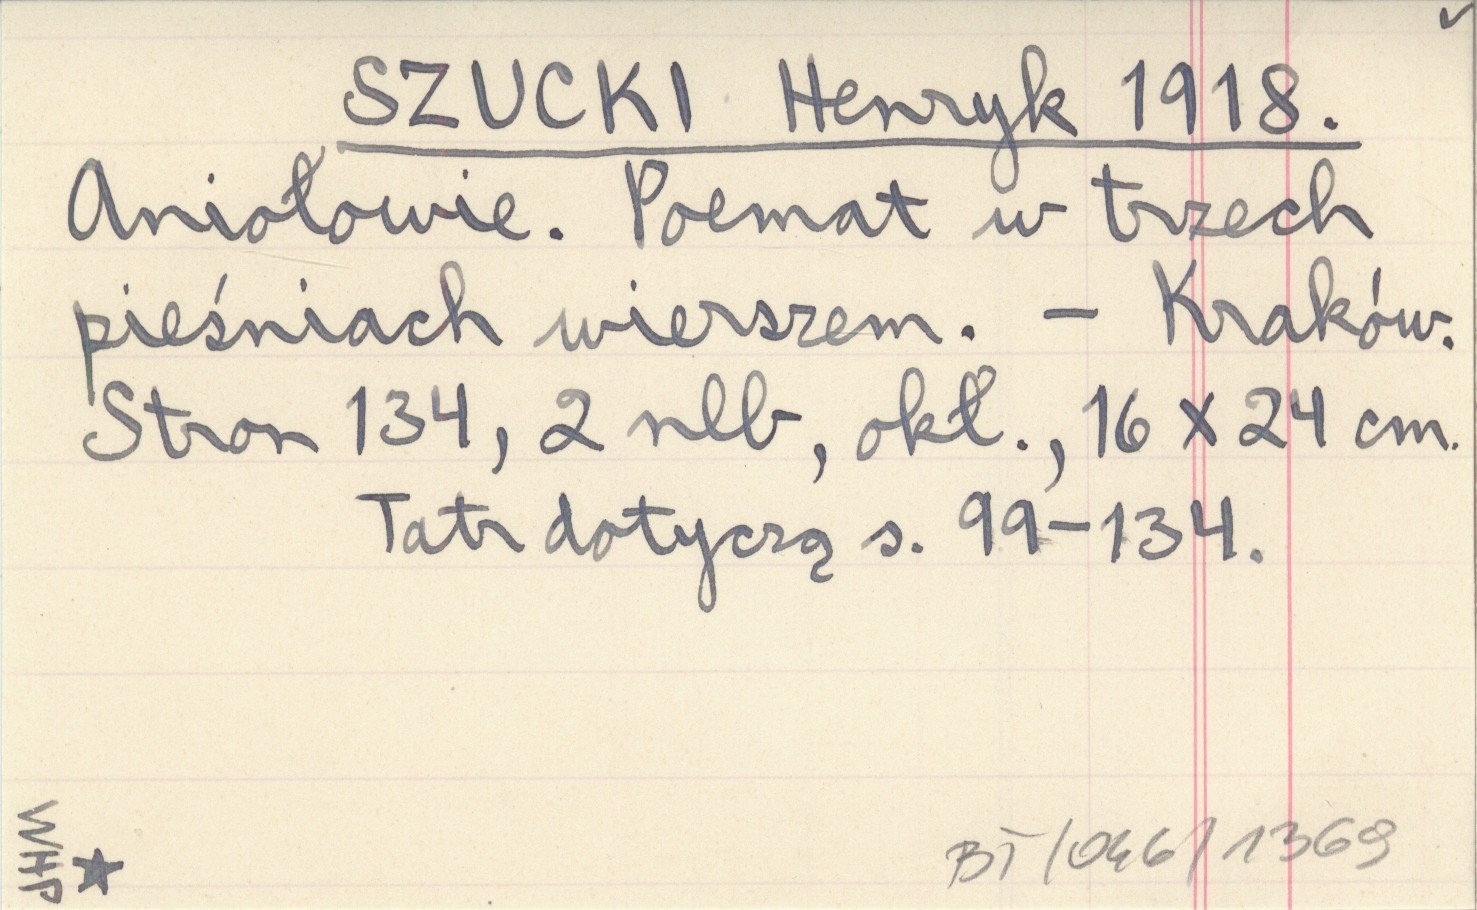 SZUCKI Henryk 1918.
Aniołowie. Poemat w trzech
pieśniach wierszem. – Kraków.
Stron 134, 2 nlb, okł., 16 x 24 cm.
Tatr dotyczą s. 99–134.
WHP
BT/046/1369